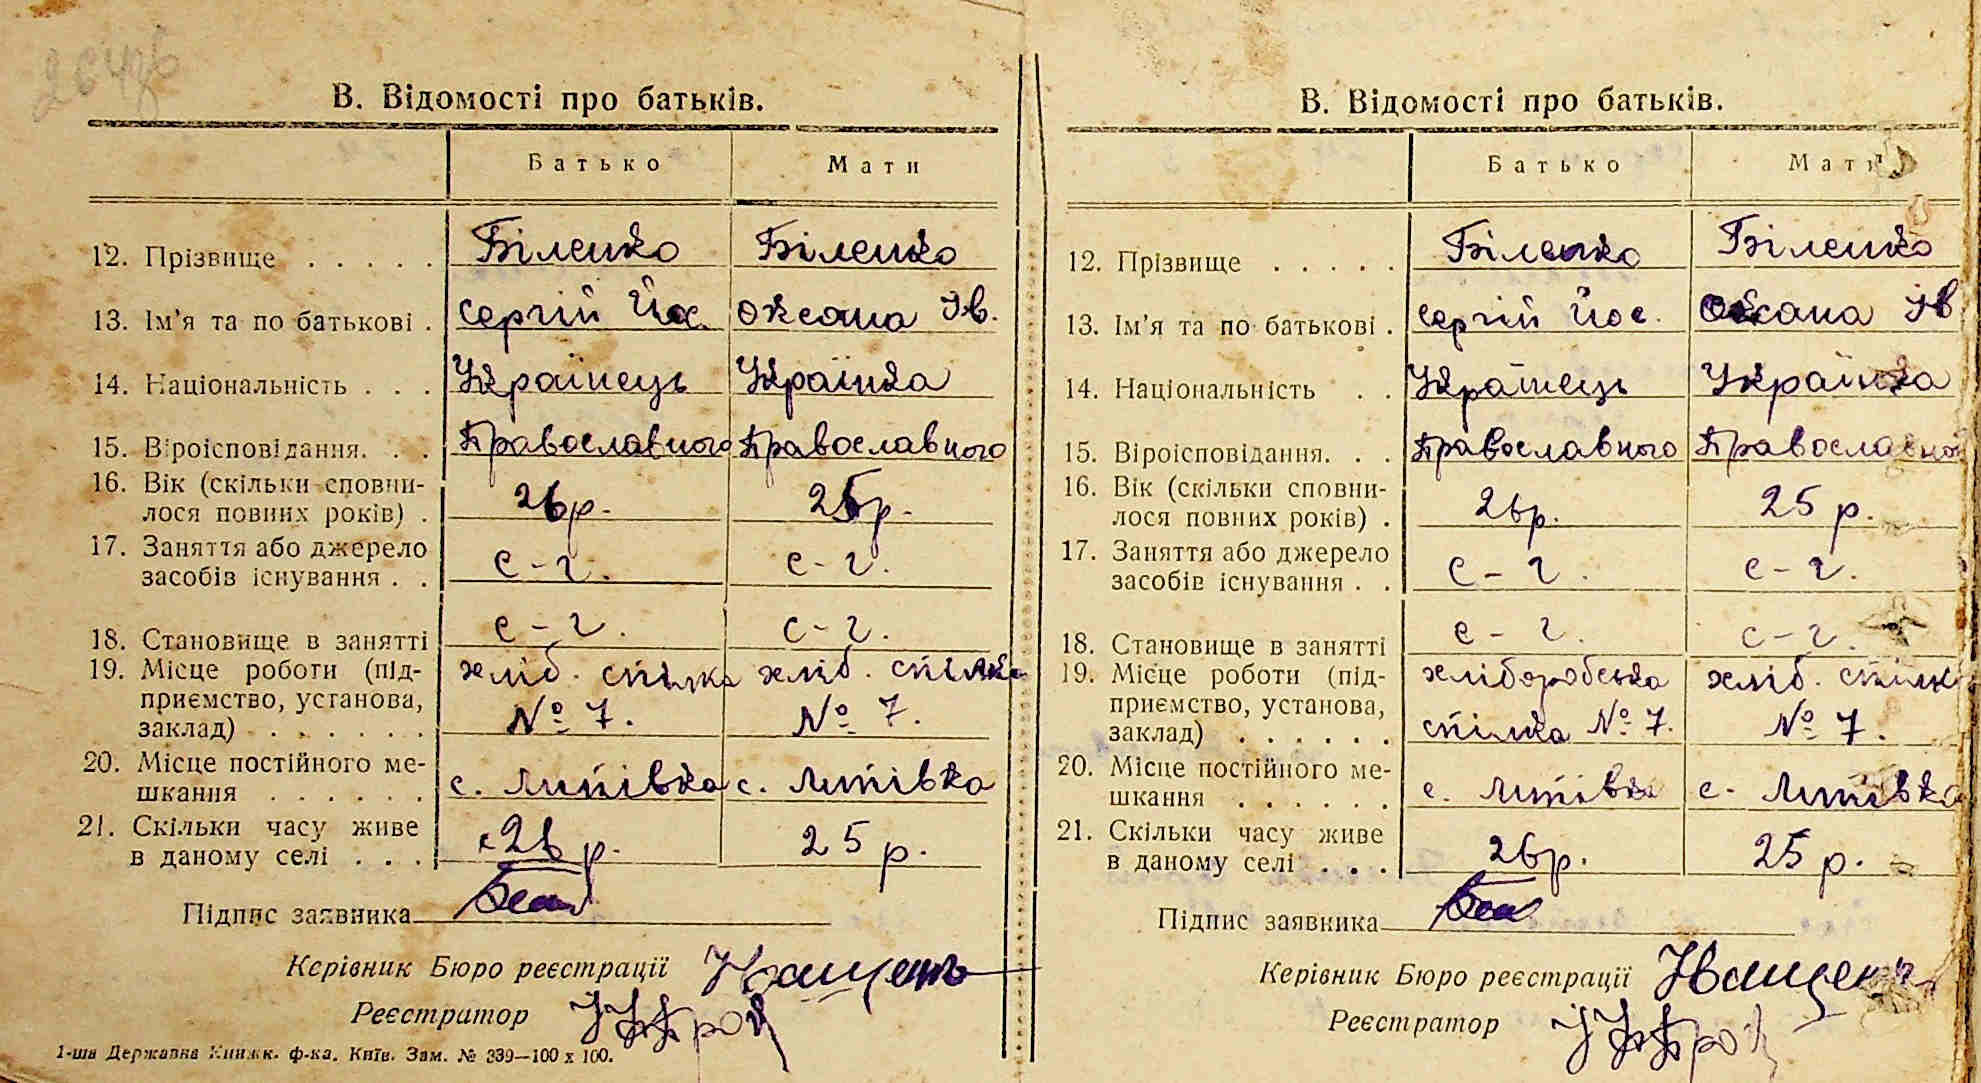 В. Відомості про батьків.
Батько Мати
12. Прізвище . . . . . Біленко Біленко
13. Ім'я та по батькові . Сергій Йос. Оксана Ів.
14. Національність . . . Українець Українка
15. Віроісповідання. . . Православного Православного
16. Вік (скільки сповни-
лося повних років) . 26р. 25р.
17. Заняття або джерело
засобів існування . . с-г. с-г.
18. Становище в занятті с-г. с-г.
19. Місце роботи (під- хліб. спілка хліб. спілка
приємство, установа,
заклад) . . . . . . № 7. № 7.
20. Місце постійного ме-
шкання . . . . . . с. Липівка с. Липівка
21. Скільки часу живе
в даному селі . . . 26 р. 25 р.
Підпис заявника
Керівник Бюро реєстрації Іващенко
Реєстратор
1-ша Державна Книжк. ф-ка. Київ. Зам. № 339—100 х 100.
В. Відомості про батьків.
Батько Мати
12. Прізвище . . . . . Біленко Біленко
13. Ім'я та по батькові . Сергій Йос. Оксана Ів
14. Національність . . Українець Українка
15. Віроісповідання. . . Православного Православної
16. Вік (скільки сповни-
лося повних років) . 26р. 25 р.
17. Заняття або джерело
засобів існування . . с-г. с-г.
18. Становище в занятті с-г. с-г.
19. Місце роботи (під- хліборобська хліб. спілк
приємство, установа,
заклад) . . . . . . спілка № 7. № 7.
20. Місце постійного ме-
шкання . . . . . . с. Липівка с. Липівка
21. Скільки часу живе
в даному селі . . . 26р. 25 р.
Підпис заявника
Керівник Бюро реєстрації Іващенко
Реєстратор